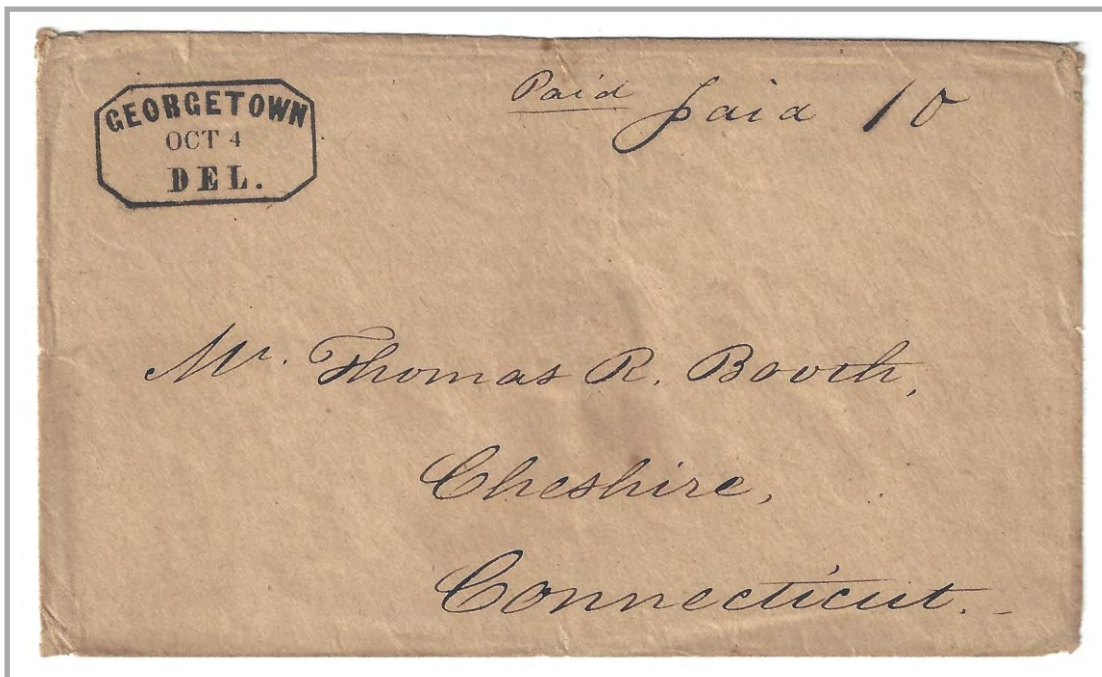 GEORGETOWN
OCT 4
DEL.
Paid Paid 10
Mr. Thomas R. Booth,
Cheshire,
Connecticut.